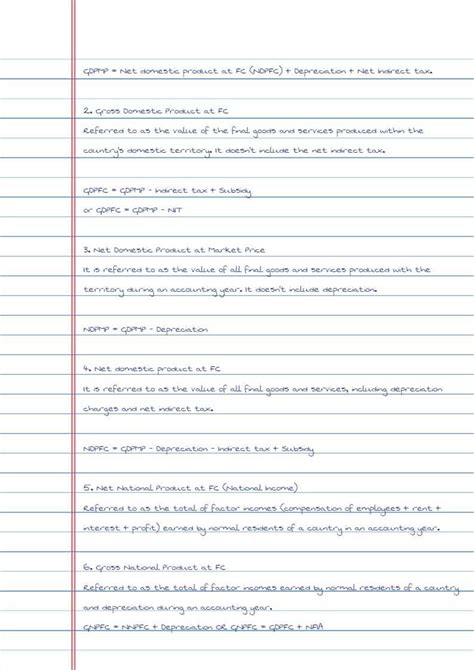 GDPMP = Net domestic product at FC (NDPFC) + Depreciation + Net Indirect tax.
2. Gross Domestic Product at FC
Referred to as the value of the final goods and services produced within the
country's domestic territory. It doesn't include the net indirect tax.
GDPFC = GDPMP - Indirect tax + Subsidy
or GDPFC = GDPMP - NIT
3. Net Domestic Product at Market Price
It is referred to as the value of all final goods and services produced with the
territory during an accounting year. It doesn't include depreciation.
NDPMP = GDPMP - Depreciation
4. Net domestic product at FC
It is referred to as the value of all final goods and services, including depreciation
charges and net indirect tax.
NDPFC = GDPMP - Depreciation - Indirect tax + Subsidy
5. Net National Product at FC (National Income)
Referred to as the total of factor incomes (compensation of employees + rent +
interest + profit) earned by normal residents of a country in an accounting year.
6. Gross National Product at FC
Referred to as the total of factor incomes earned by normal residents of a country
and depreciation during an accounting year.
GNPFC = NNPFC + Depreciation OR GNPFC = GDPFC + NFIA